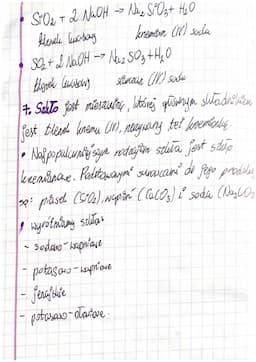 • SiO₂ + 2 NaOH → Na₂SiO₃ + H₂O
tlenek krzemian (IV) sodu
• SO₂ + 2 NaOH → Na₂SO₃ + H₂O
tlenek (IV) sodu
7. Szkło jest mieszaniną, której głównym składnikiem
jest tlenek krzemu (IV), nazywany też krzemionką.
• Najpopularniejszym rodzajem szkła jest szkło
krzemianowe. Podstawowymi surowcami do jego produkcji
są: piasek (SiO₂), wapień (CaCO₃) i soda (Na₂CO₃
• wyróżniamy szkła:
- sodowo-wapniowe
- potasowo-wapniowe
- jenajskie
- potasowo-ołowiowe.